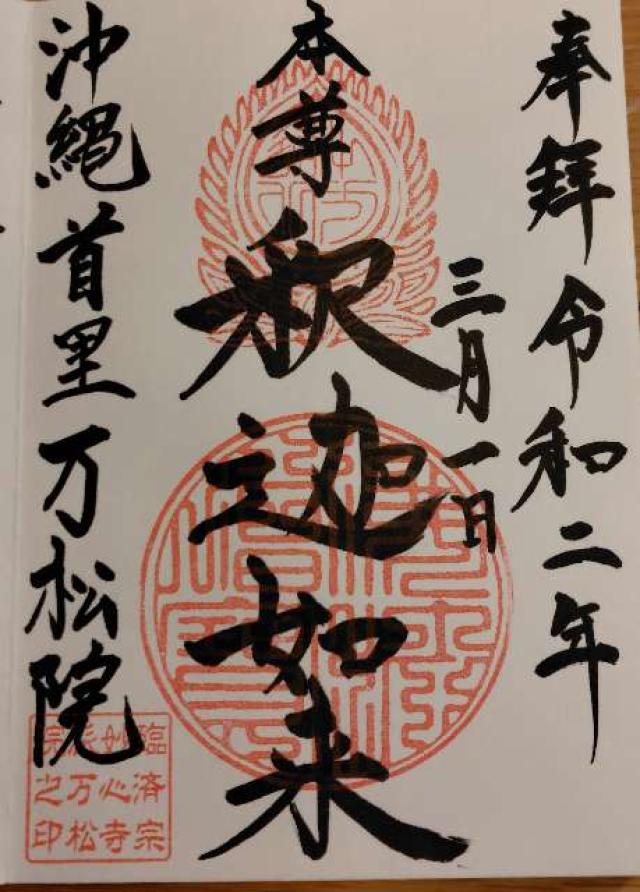 奉拝 令和二年
三月一日
本尊 釈迦如来
沖縄首里万松院
臨済宗
妙心寺
派万松
院之印